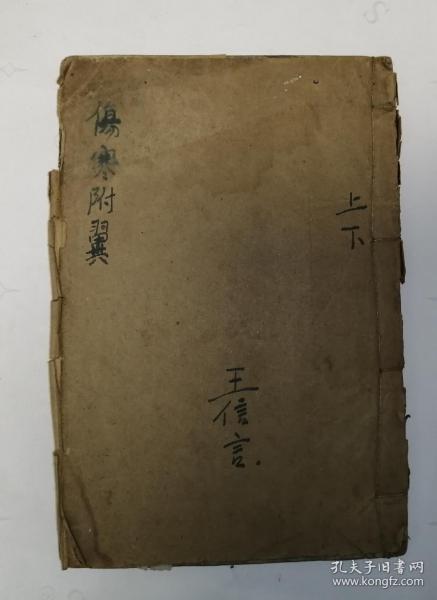 傷寒附翼
上下
王信言.
孔夫子旧书网
www.kongfz.com